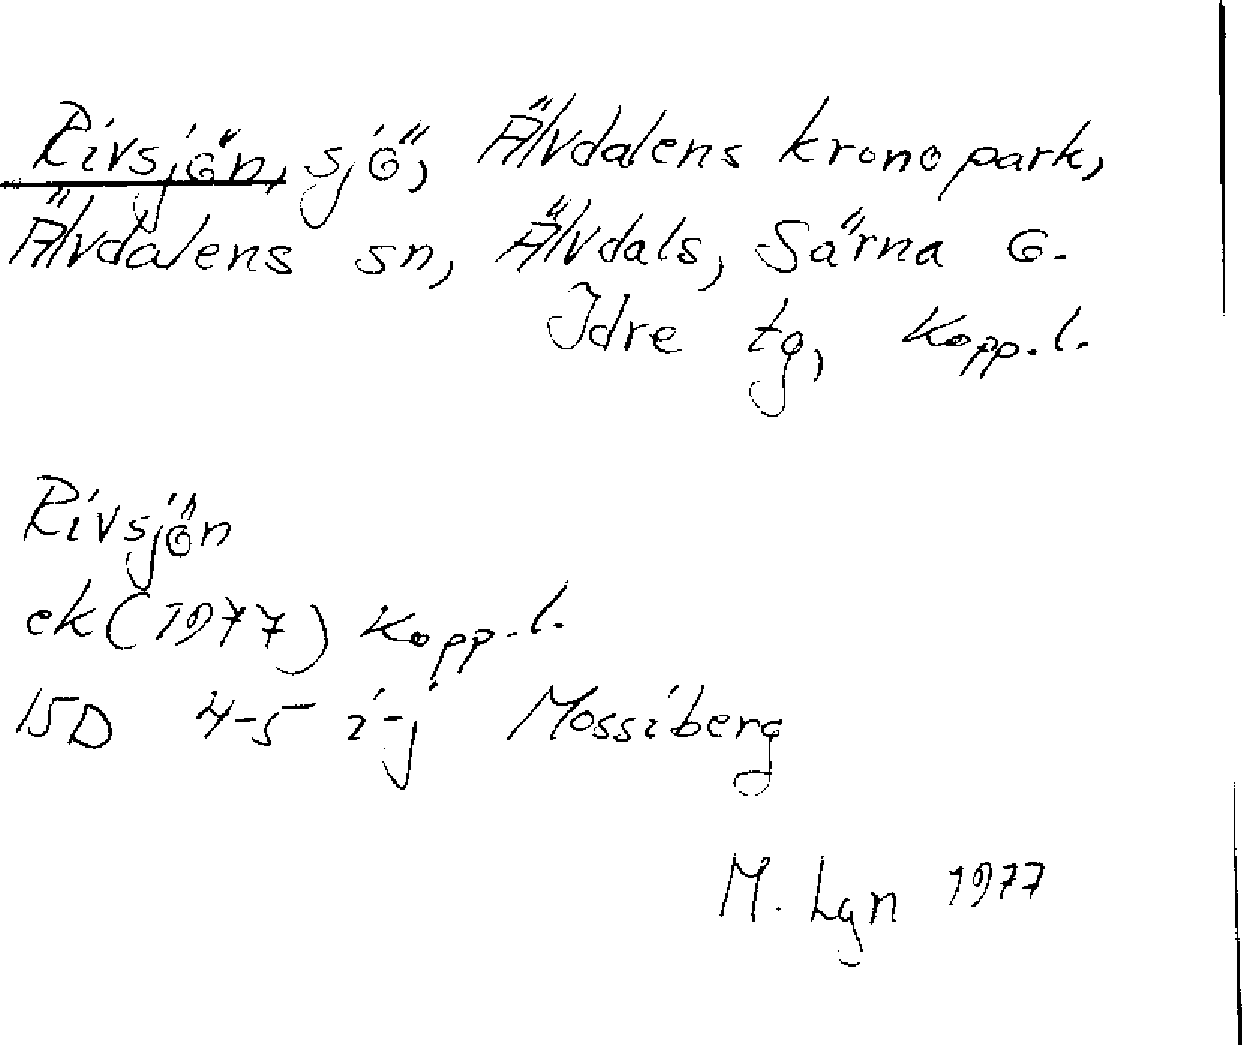 Rivsjön, sjö, Älvdalens kronopark,
Älvdalens sn, Älvdals, Särna o.
Idre tg, Kopp.l.
Rivsjön
ek (1977) Kopp.l.
15D 4-5 i-j Mossiberg
M. Lgn 1977